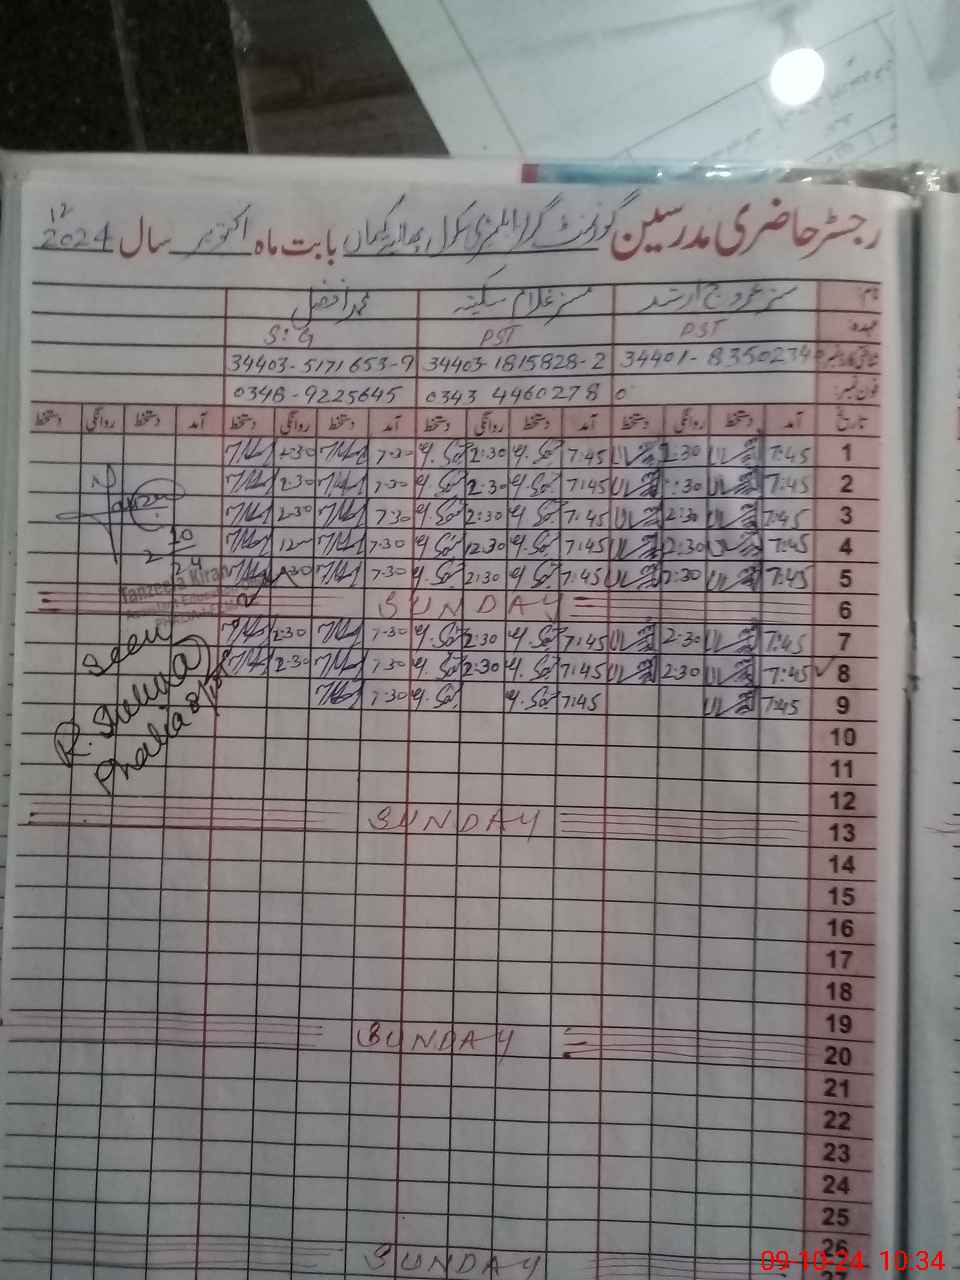 رجسٹر حاضری مدرسین گورنمنٹ گرلز ایلمنٹری سکول بابت ماہ اکتوبر سال 2024
12
نام: مسز عروج ارشد مسز غلام سکینہ محمد افضل
عہدہ: PST PST S:G
شناختی کارڈ نمبر 34401-8350234 34403-1815828-2 34403-5171653-9
فون نمبر: 0 0343 4460278 0348-9225645
تاریخ آمد دستخط روانگی دستخط آمد دستخط روانگی دستخط آمد دستخط روانگی دستخط آمد دستخط روانگی دستخط
1 7:45 2:30 7:45 2:30 7:30 2:30
2 7:45 2:30 7:45 2:30 7:30 2:30
3 7:45 2:30 7:45 2:30 7:30 2:30
4 7:45 2:30 7:45 12:30 7:30 12
5 7:45 2:30 7:45 2:30 7:30 2:30
6 SUNDAY
7 7:45 2:30 7:45 2:30 7:30 2:30
8 7:45 2:30 7:45 2:30 7:30 2:30
9 7:45 7:45 7:30
10
11
12
13 SUNDAY
14
15
16
17
18
19
20 SUNDAY
21
22
23
24
25
26 SUNDAY
27
2 10
24
Tanzeela Kiran
Seen
R. Shumaila
Phalia
09-10-24 10:34